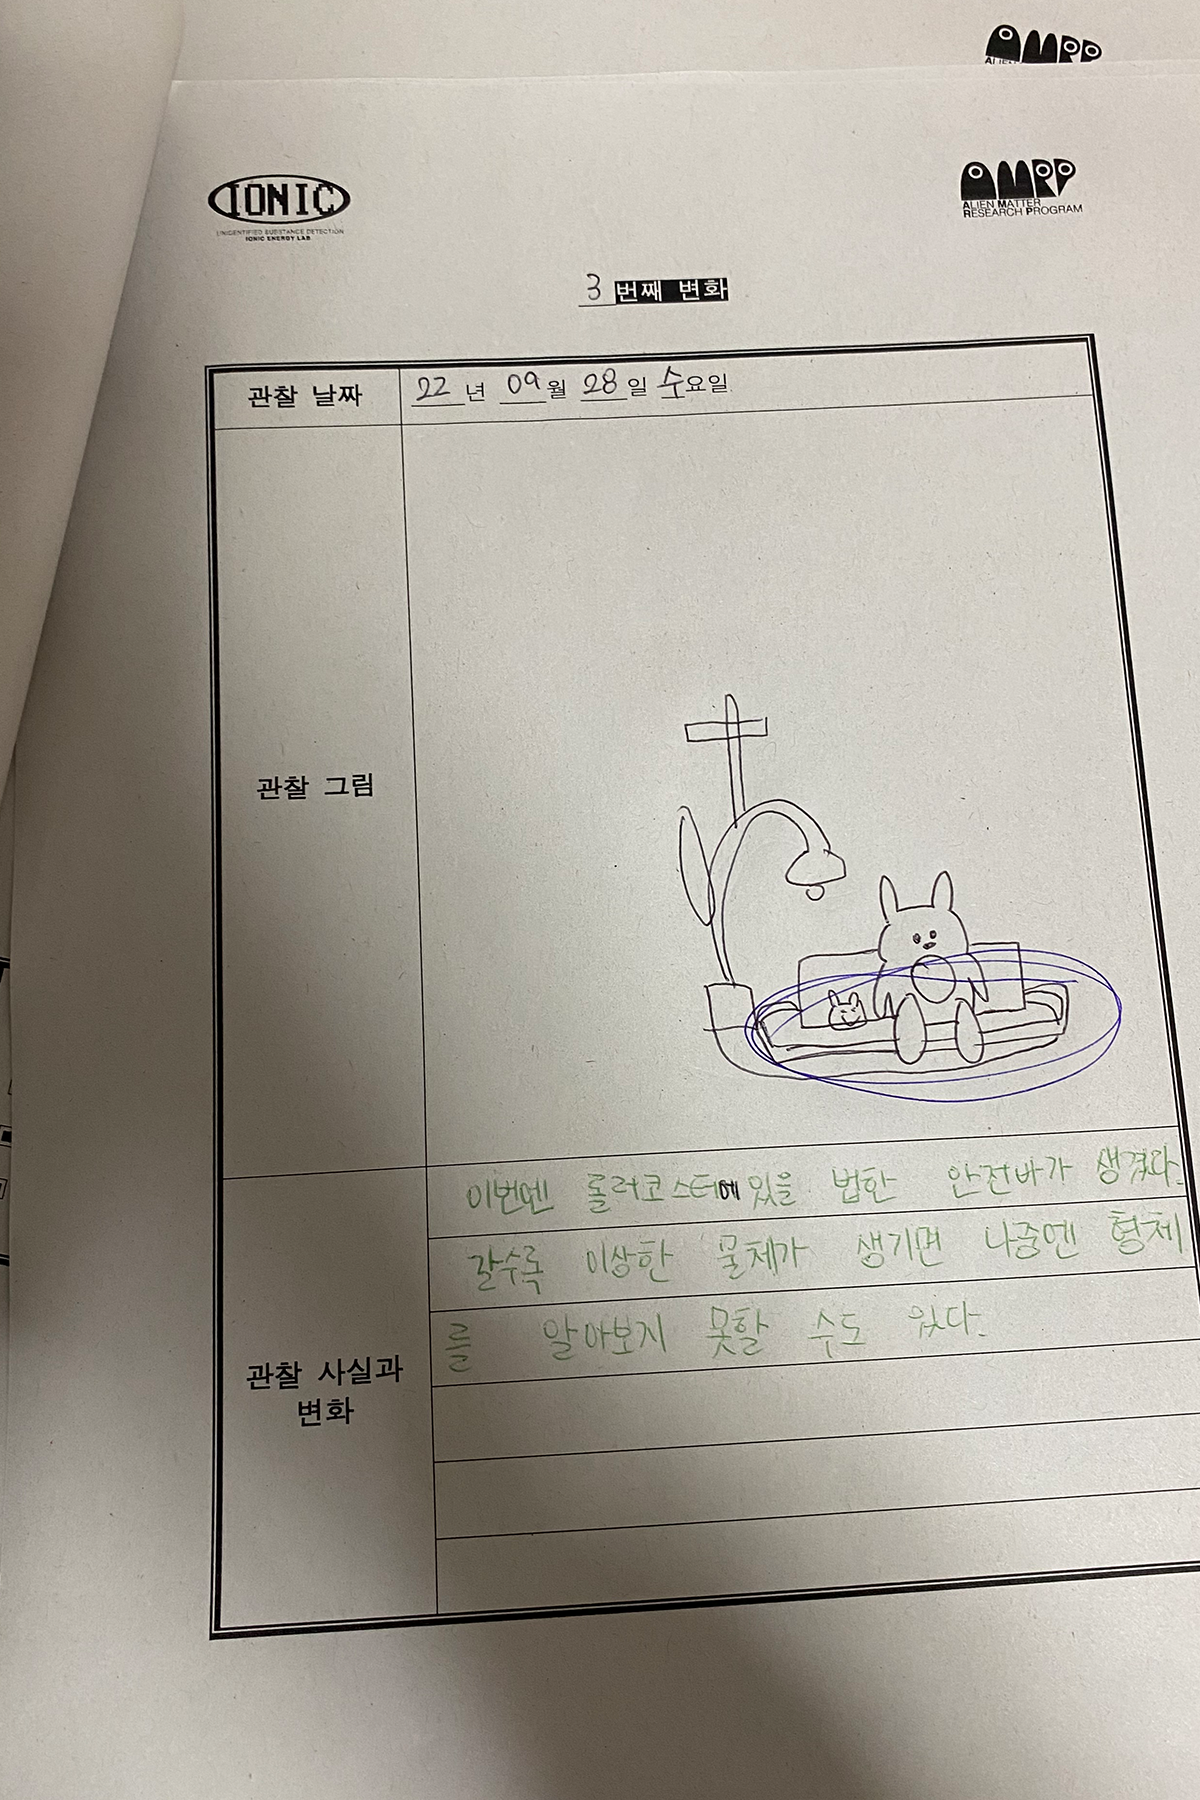 AMRP
IONIC
UNIDENTIFIED SUBSTANCE DETECTION
IONIC ENERGY LAB
AMRP
ALIEN MATTER
RESEARCH PROGRAM
3 번째 변화
관찰 날짜
22 년 09 월 28 일 수요일
관찰 그림
관찰 사실과
변화
이번엔 롤러코스터에 있을 법한 안전바가 생겼다.
갈수록 이상한 물체가 생기면 나중엔 형체
를 알아보지 못할 수도 있다.